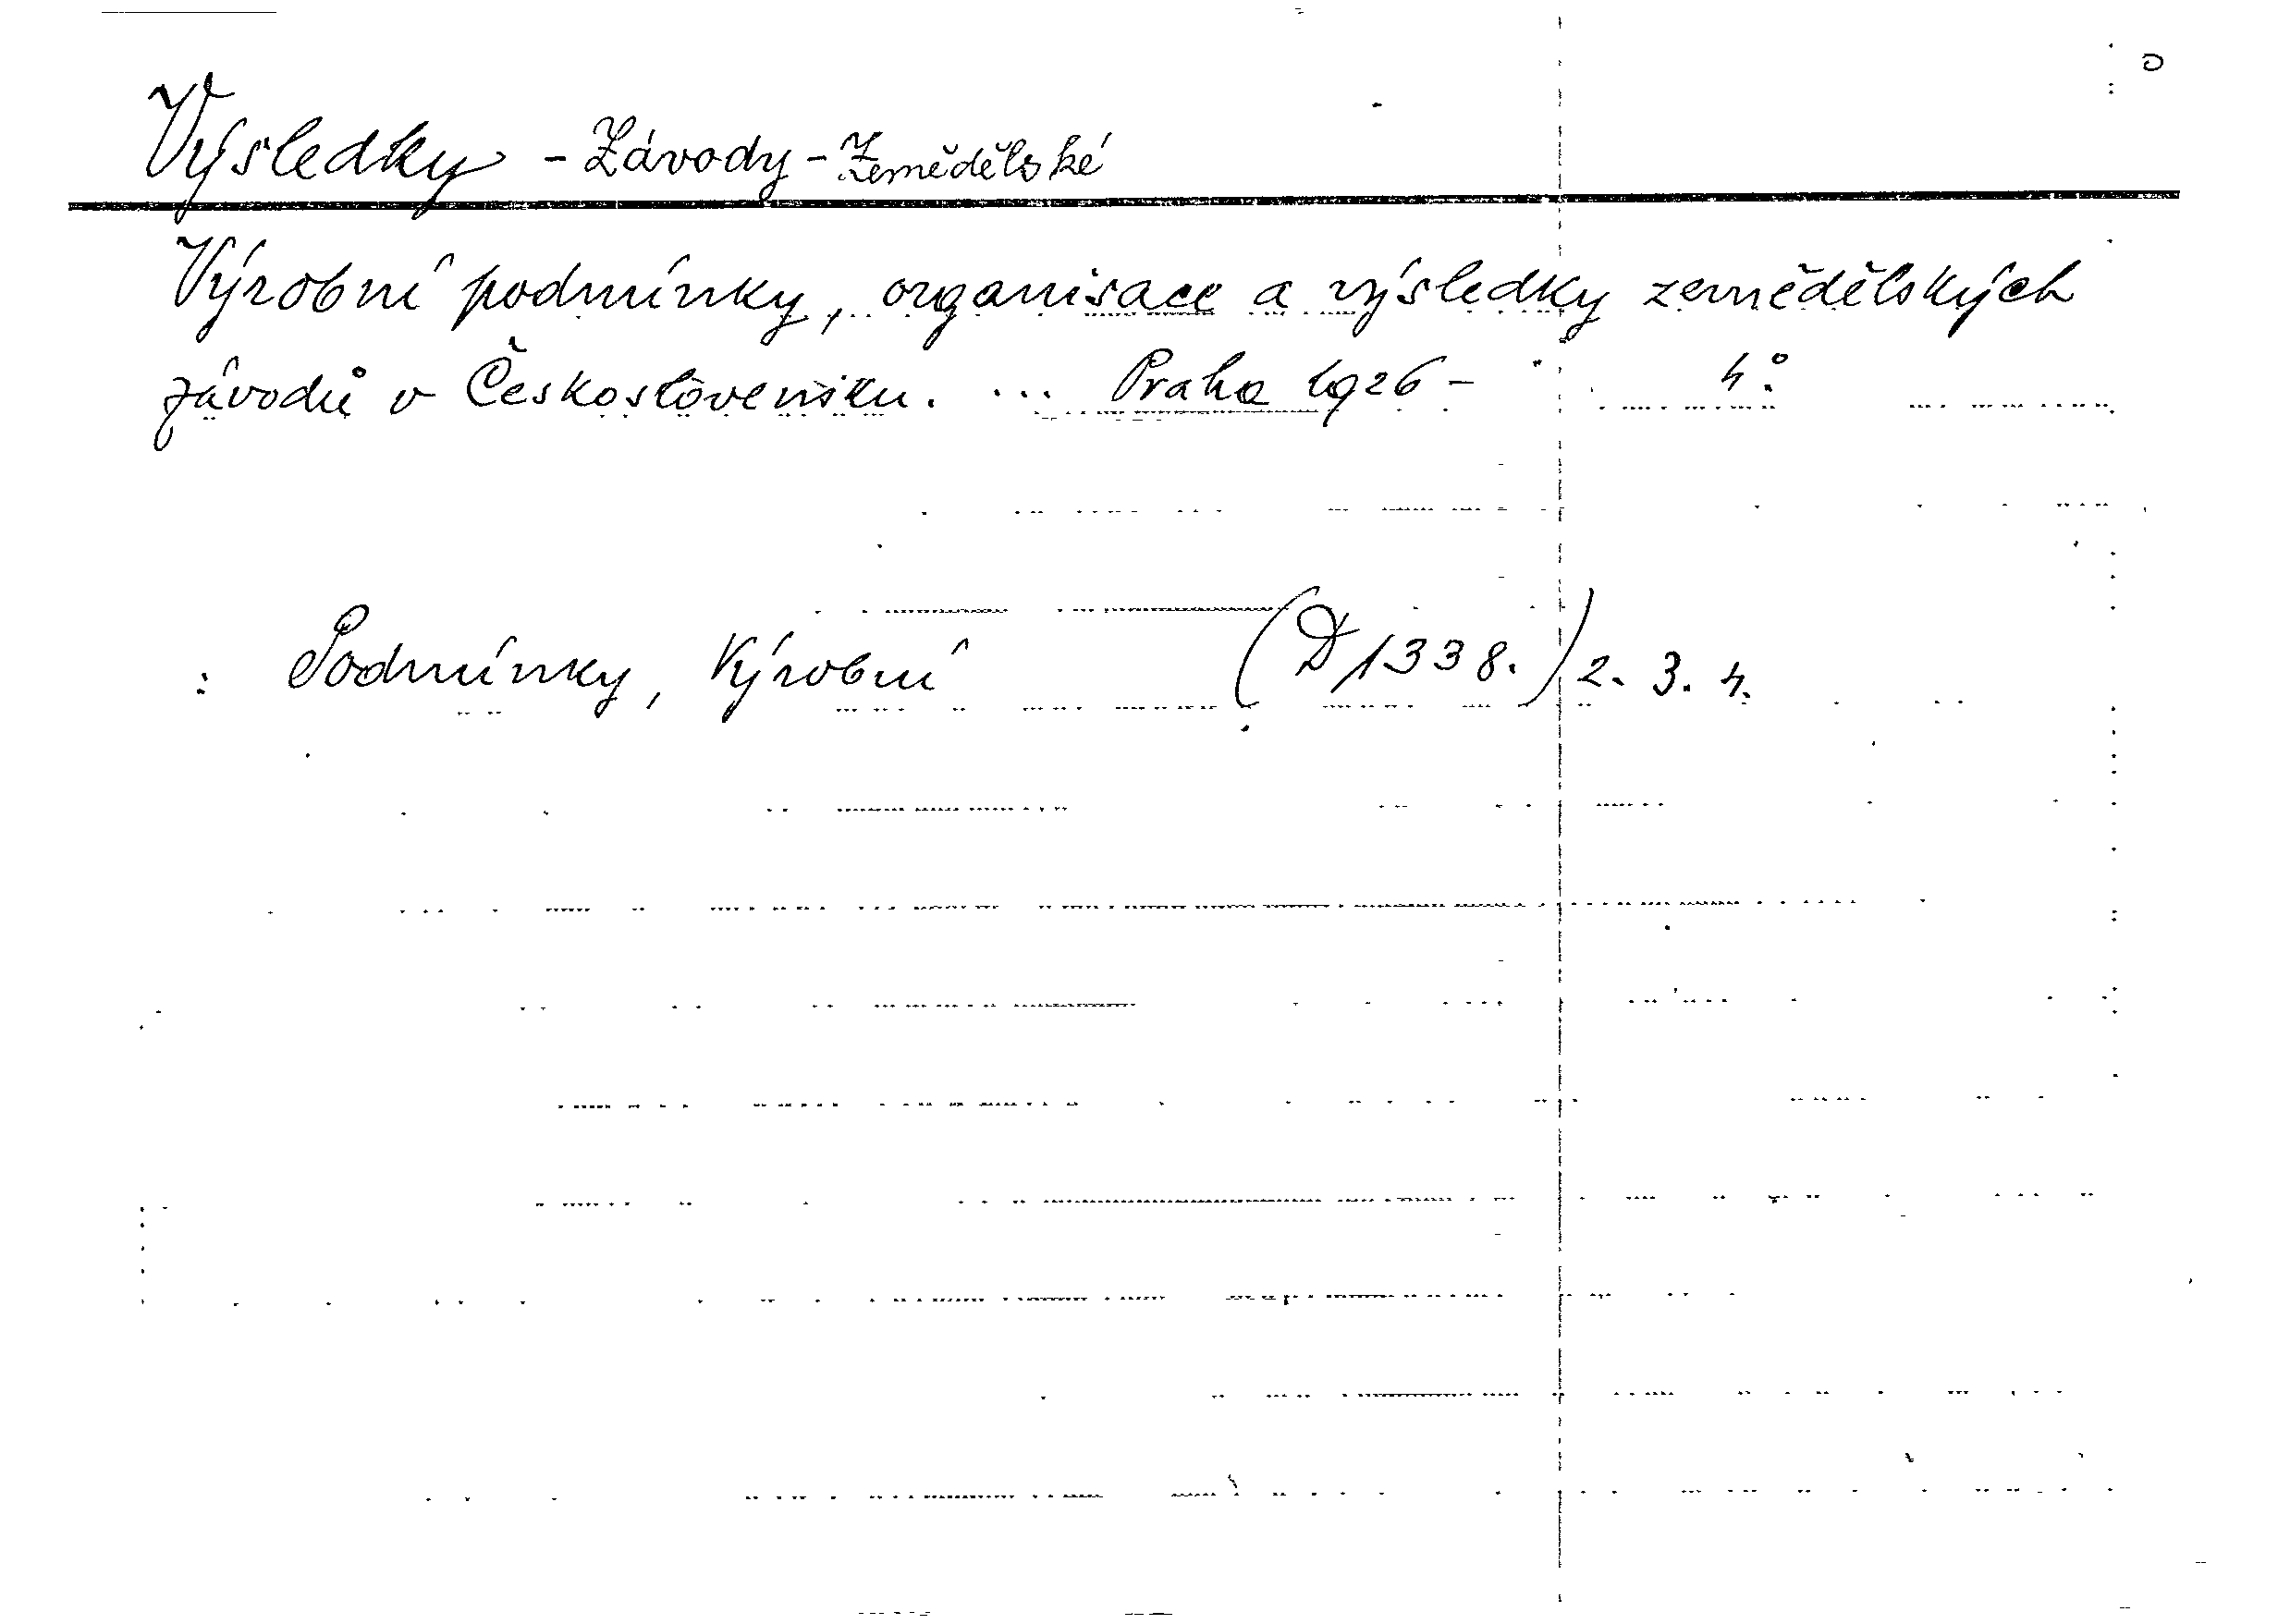 Výsledky - Závody - Zemědělské
Výrobní podmínky, organisace a výsledky zemědělských
závodů v Československu. ... Praha 1926 - 4°.
: Podmínky, Výrobní (D 1338.) 2. 3. 4.